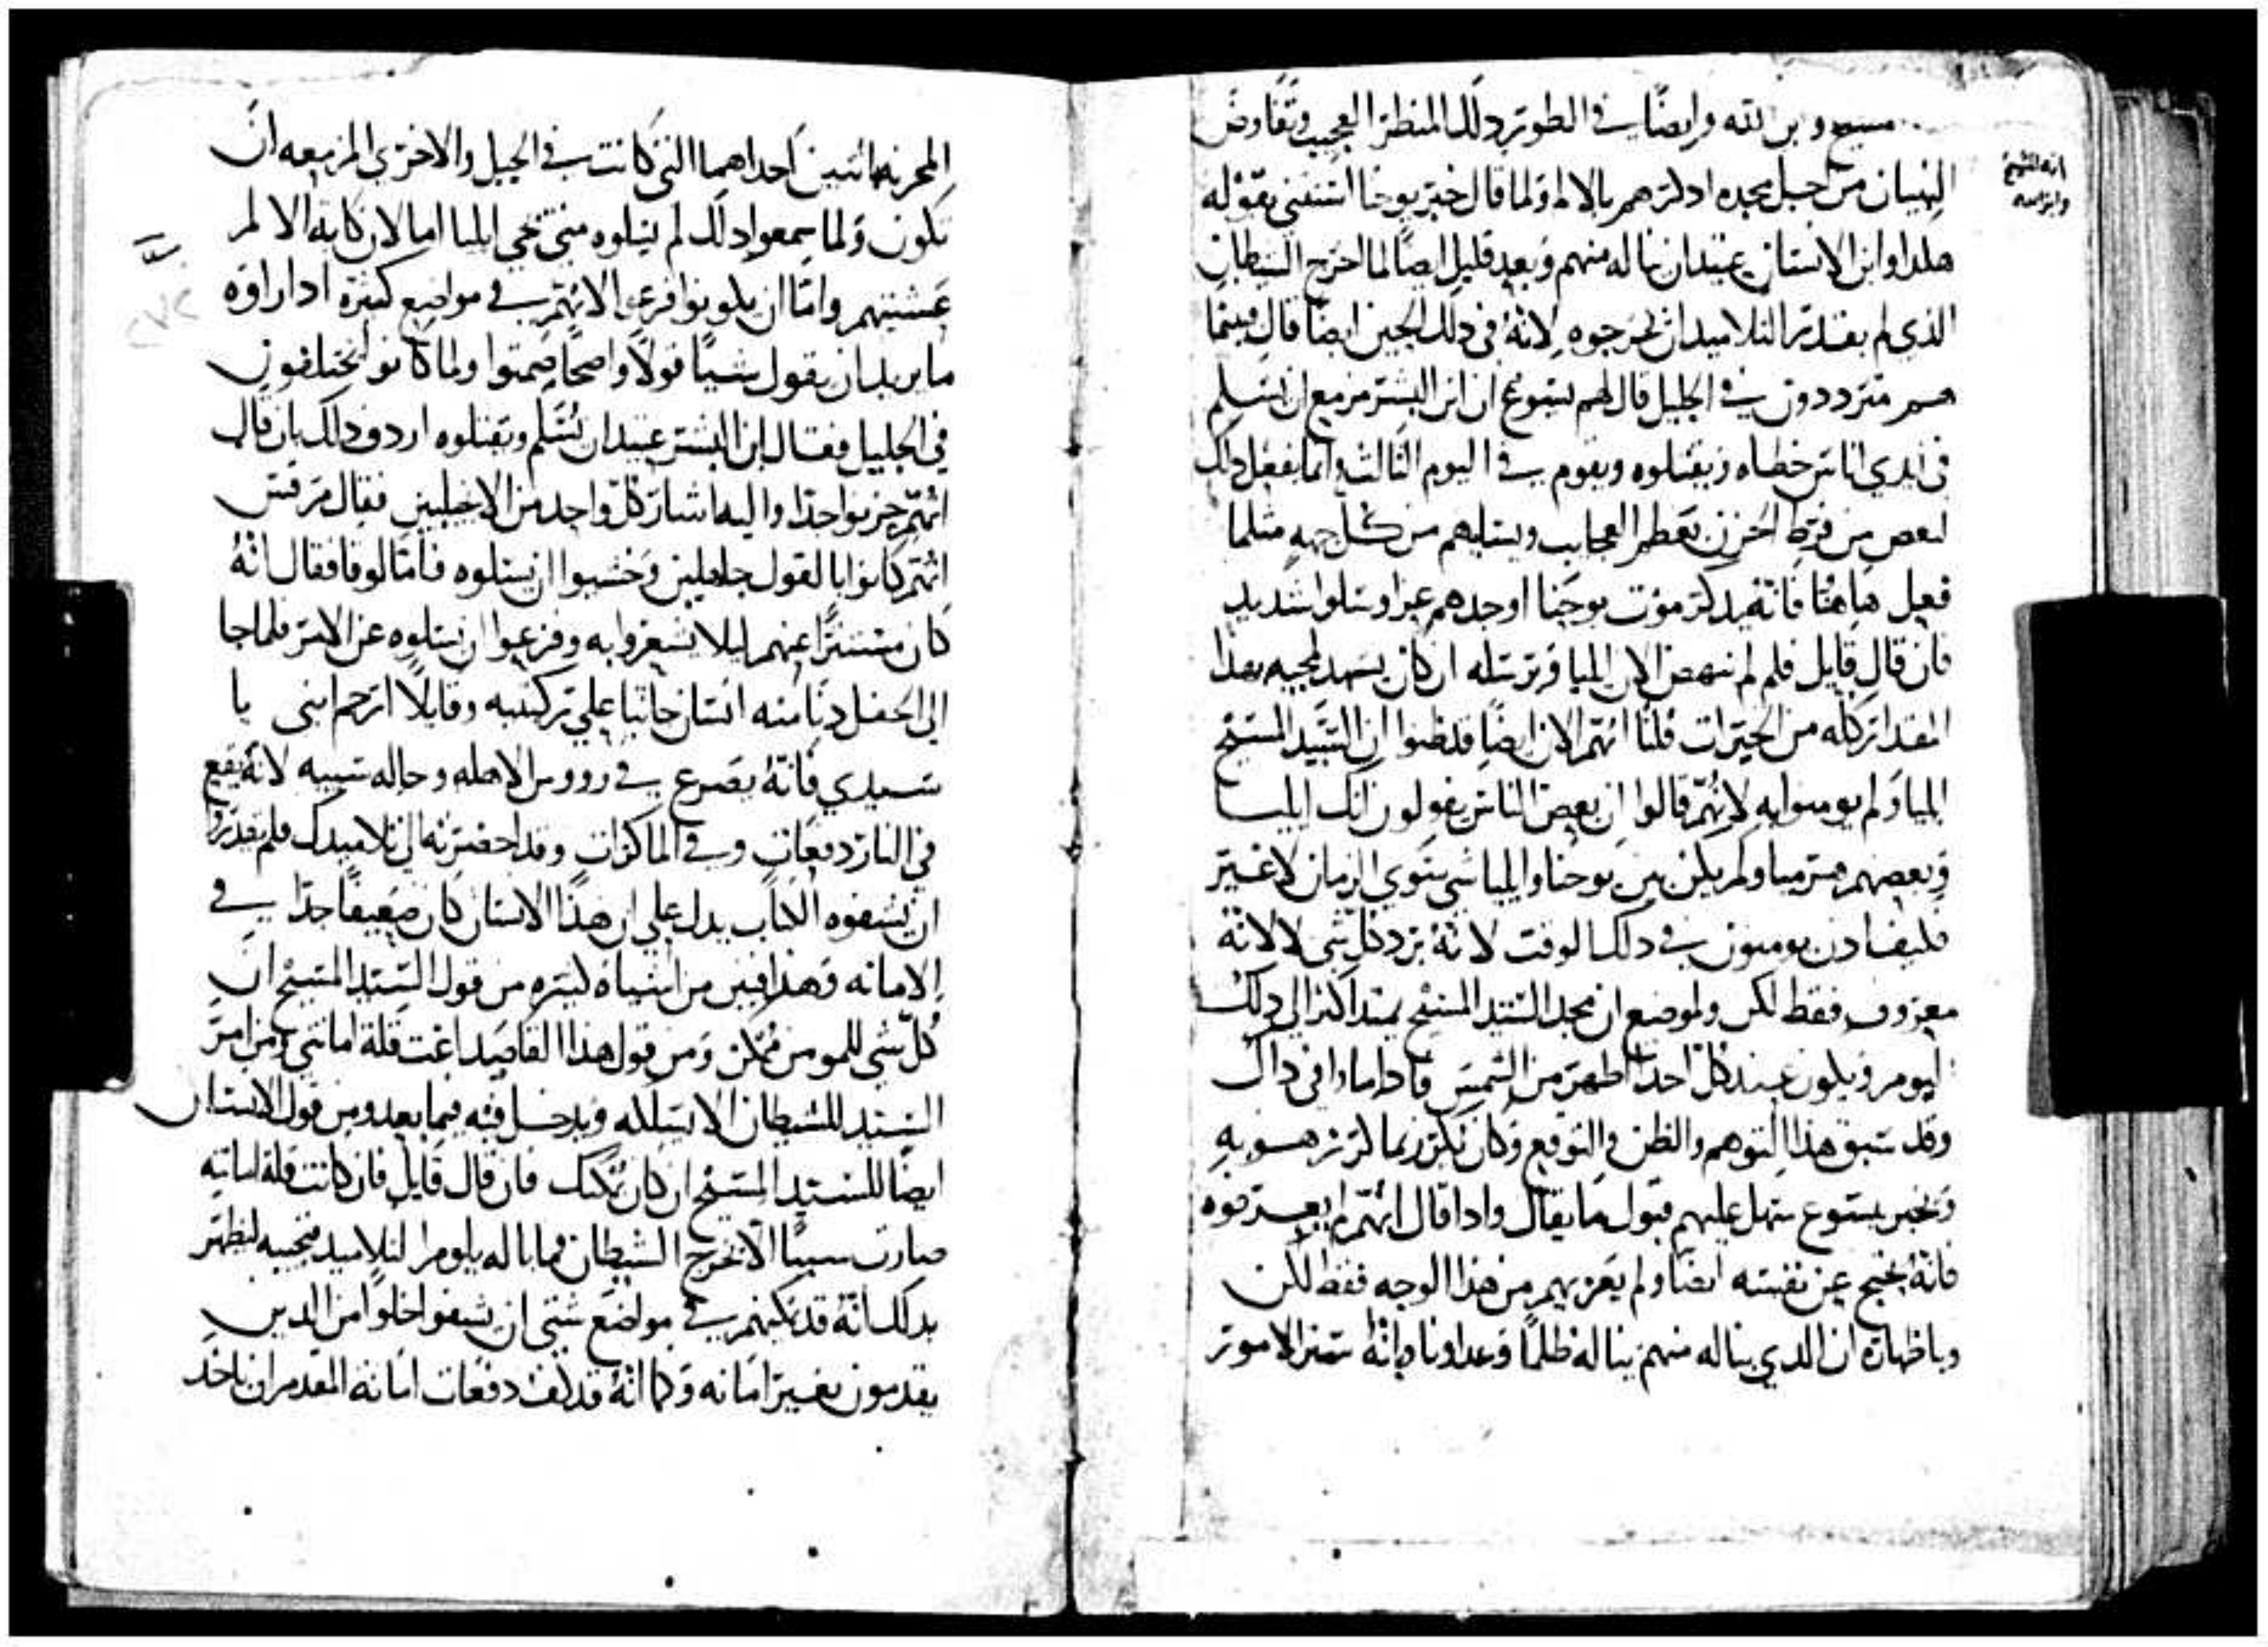 مسيح وبن الله وايضًا في الطور دلك المنظر العجيب وتفاوض
انه المسيح
وابن الله
النبيان من اجل مجده ادكرهم بالالم ولما قال خبر يوحنا استتني بقوله
هكدا وابن الانسان عتيدان يناله منهم وبعد قليل ايضًا لما اخرج الشيطان
الذي لم يقدر التلاميد ان يخرجوه لانه في دلك الحين ايضًا قال فبينما
هم مترددون في الجليل قال لهم يسوع ان ابن البشر مزمع ان يسلم
في ايدي اناس خطاه ويقتلوه ويقوم في اليوم التالت وانما يفعل داك
لنعص من فرط الحزن بعظم العجايب ويسليهم من كل جهه متلما
فعل هاهنا فانه بدكر موت يوحنا اوجدهم عزا وسلوا شديد
فان قال قايل فلم لم ينهض الان ايليا فيرسله ان كان يشهد لمجيه بهدا
المقدار كله من الخيرات قلنا انهم الان ايضًا قد ظنوا ان السيد المسيح
ايليا ولم يومنوا به لانهم قالوا ان بعض الناس يقولون انك ايليا
وبعضهم ارميا ولم يكن بين يوحنا وايليا شي سوي الزمان لا غير
فكيف ادن يومنون في دلك الوقت لانه يرد كل شي لا لانه
معروف فقط لكن ولموضع ان مجد السيد المسيح يمتد اكتر الي دلك
اليوم ويكون عند كل احد اظهر من الشمس فادا ما وافي داك
وقد سبق هذا التوهم والظن والتوقع وكان يكرز بما كرز هو به
ويخبر بيسوع سهل عليهم قبول ما يقال وادا قال انهم لم يعرفوه
فانه يحتج عن نفسه ايضًا ولم يعزيهم من هذا الوجه فقط لكن
وباظهاره ان الدي يناله منهم يناله ظلمًا وعدوانا وانه ستر الامور
المحزنه باتنتين احداهما التي كانت في الجبل والاخري المزمعه ان
تكون ولما سمعوا دلك لم يسلوه متي تجي ايليا اما لان كابة الالم
غشيتهم واما ان يكونوا فزعوا لانهم في مواضع كتيرة ادا راوه
ما يريد ان يقول شيًا قولًا واضحًا صمتوا ولما كانوا يختلفون
في الجليل فقال ابن البشر عتيد ان يسلم ويقتلوه اردف دلك بان قال
انهم حزنوا جدا واليه اشار كل واحد من الانجيليين فقال مرقس
انهم كانوا بالقول جاهلين وخشيوا ان يسلوه فاما لوقا فقال انه
كان مستترًا عنهم ليلا يشعروا به وفزعوا ان يسلوه عن الامر فلما جا
الي الحفل دنا منه انسان جاتيا علي ركبتيه وقايلًا ارحم ابني يا
سيدي فانه يصرع في رووس الاهله وحاله سييه لانه يقع
في النار دفعات وفي الما كرات وقد احضرته الي تلاميدك فلم يقدروا
ان يشفوه الكتاب يدل علي ان هذا الانسان كان ضعيفًا جدًا في
الامانه وهذا فبين من اشياه كتيره من قول السيد المسيح ان
كل شي للمومن ممكن ومن قول هذا القاصد اغت قلة امانتي ومن امر
السيد للشيطان الا يسلكه ويدخل فيه فيما بعد ومن قول الانسان
ايضًا للسيد المسيح ان كان يمكنك فان قال قايل فان كانت قلة امانته
صارت سببًا الا يخرج الشيطان فما باله يلوم التلاميد فنجيبه ليظهر
بدلك انه قد يمكنهم في مواضع شتي ان يشفوا خلوا من الدين
يقدمون بغير امانه وكما انه قد كفت دفعات امانة المقدم ان ياخد